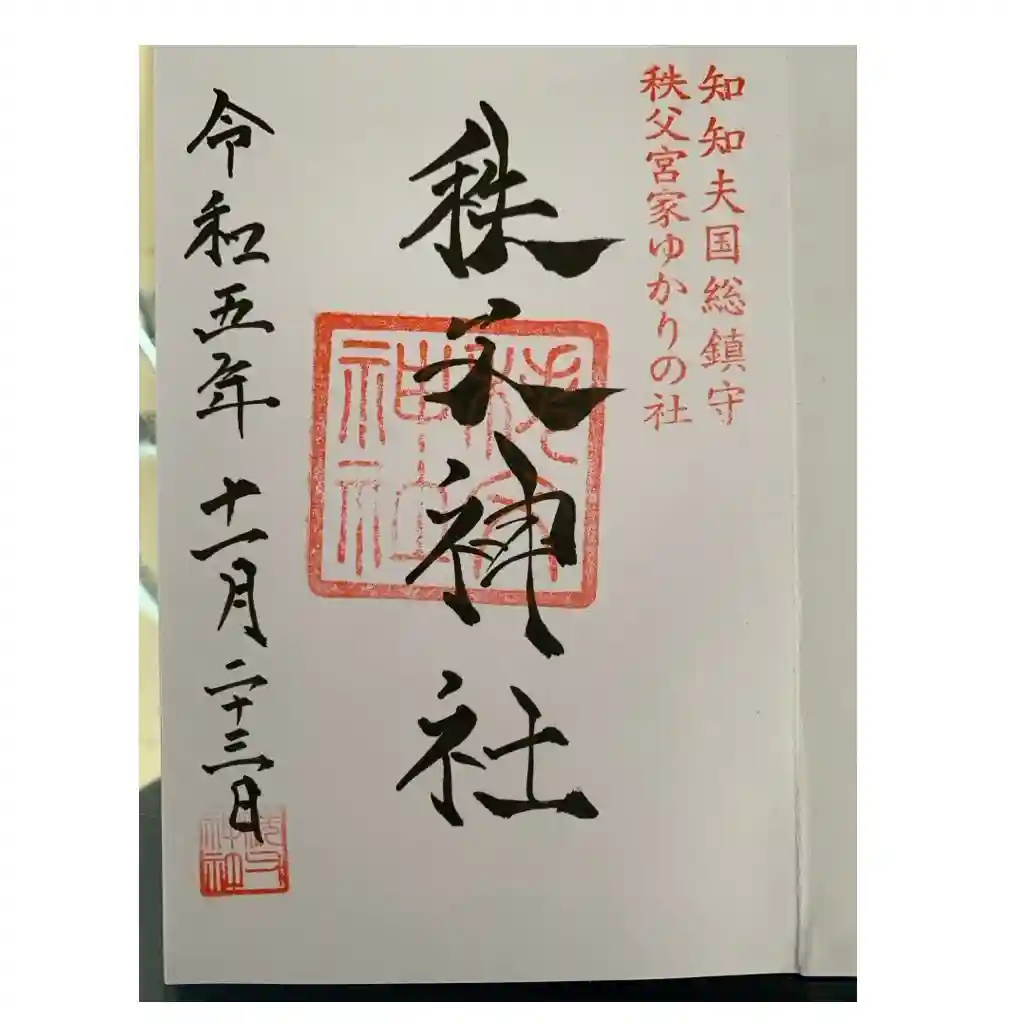 知知夫国総鎮守
秩父宮家ゆかりの社
秩父神社
令和五年十一月二十三日
秩父神社